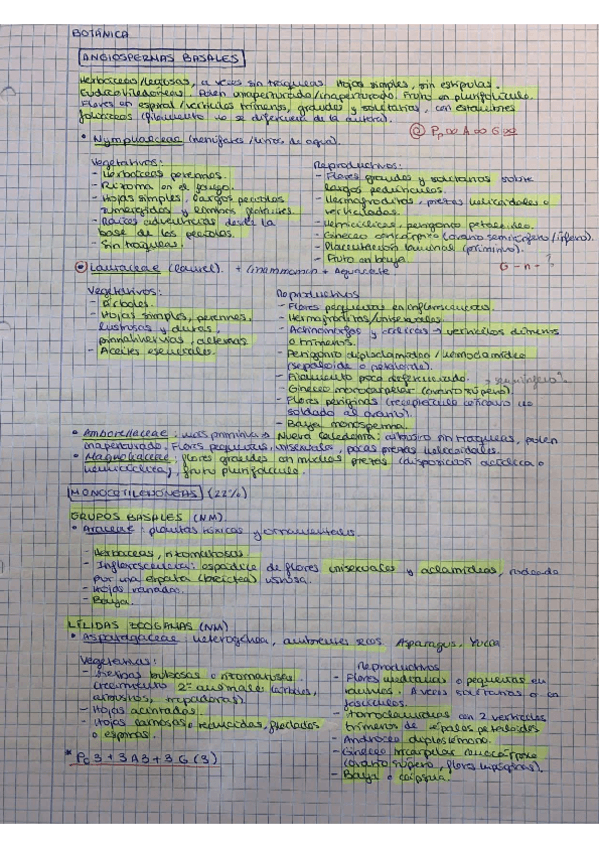 BOTÁNICA
ANGIOSPERMAS BASALES
Herbáceas/leñosas, a veces sin tráqueas. Hojas simples, sin estípulas.
Eudicotiledóneas. Polen unaperturado/inaperturado. Fruto en plurifolículo.
Flores en espiral/verticilos trímeros, grandes y solitarias, con estambres
foliáceos (filamento no se diferencia de la antera).
Pp∞ A∞ G∞
• Nymphaeaceae (nenúfares/lirios de agua).
Vegetativos:
- Herbáceas perennes.
- Rizoma en el fango.
- Hojas simples, largos pecíolos
sumergidos y limbos flotantes.
- Raíces adventicias desde la
base de los pecíolos.
- Sin tráqueas.
Reproductivos:
- Flores grandes y solitarias sobre
largos pedúnculos.
- Hermafroditas, piezas helicoidales o
verticiladas.
- Hemicíclicas, perigonio petaloideo.
- Gineceo sincárpico (ovario semiínfero/ínfero).
- Placentación laminar (primitivo).
- Fruto en baya.
G - n - ?
• Lauraceae (laurel). + Cinnamomum + Aguacate
Vegetativos:
- Árboles.
- Hojas simples, perennes,
lustrosas y duras,
pinnatinervias, alternas
- Aceites esenciales.
Reproductivos
- Flores pequeñas en inflorescencias.
- Hermafroditas/unisexuales.
- Actinomorfas y cíclicas → verticilos dímeros
o trímeros.
- Perigonio diploclamídeo/homoclamídeo
(sepaloide o petaloide).
- Filamento poco diferenciado. → semiínfero?
- Gineceo monocarpelar (ovario súpero).
- Flores períginas (receptáculo cóncavo no
soldado al ovario).
- Baya monosperma.
• Amborellaceae: más primitiva → Nueva Caledonia: arbusto sin tráqueas, polen
inaperturado. Flores pequeñas, unisexuales, pocas piezas helicoidales.
• Magnoliaceae: flores grandes con muchas piezas (disposición acíclica o
hemicíclica), fruto plurifolículo.
MONOCOTILEDÓNEAS (22%)
GRUPOS BASALES (NM)
• Araceae: plantas tóxicas y ornamentales.
- Herbáceas, rizomatosas
- Inflorescencia: espádice de flores unisexuales y aclamídeas, rodeada
por una espata (bráctea) vistosa.
- Hojas variadas.
- Baya.
LÍLIDAS ECOGAMAS (NM)
• Asparagaceae: heterogénea, ambientes secos Asparagus, Yucca
Vegetativas:
- Geófitas bulbosas o rizomatosas.
Crecimiento 2º anómalo (árboles,
arbustos, trepadoras)
- Hojas acintadas.
- Hojas carnosas o reducidas, filocladios
o espinas.
Reproductivos
- Flores medianas o pequeñas en
racimos. A veces solitarias o en
fascículos.
- Homoclamídeas con 2 verticilos
trímeros de tépalos petaloides
- Androceo diplostémono.
- Gineceo tricarpelar sincárpico
(ovario súpero, flores hipóginas).
- Baya o cápsula.
* Pc 3 + 3 A 3 + 3 G (3)